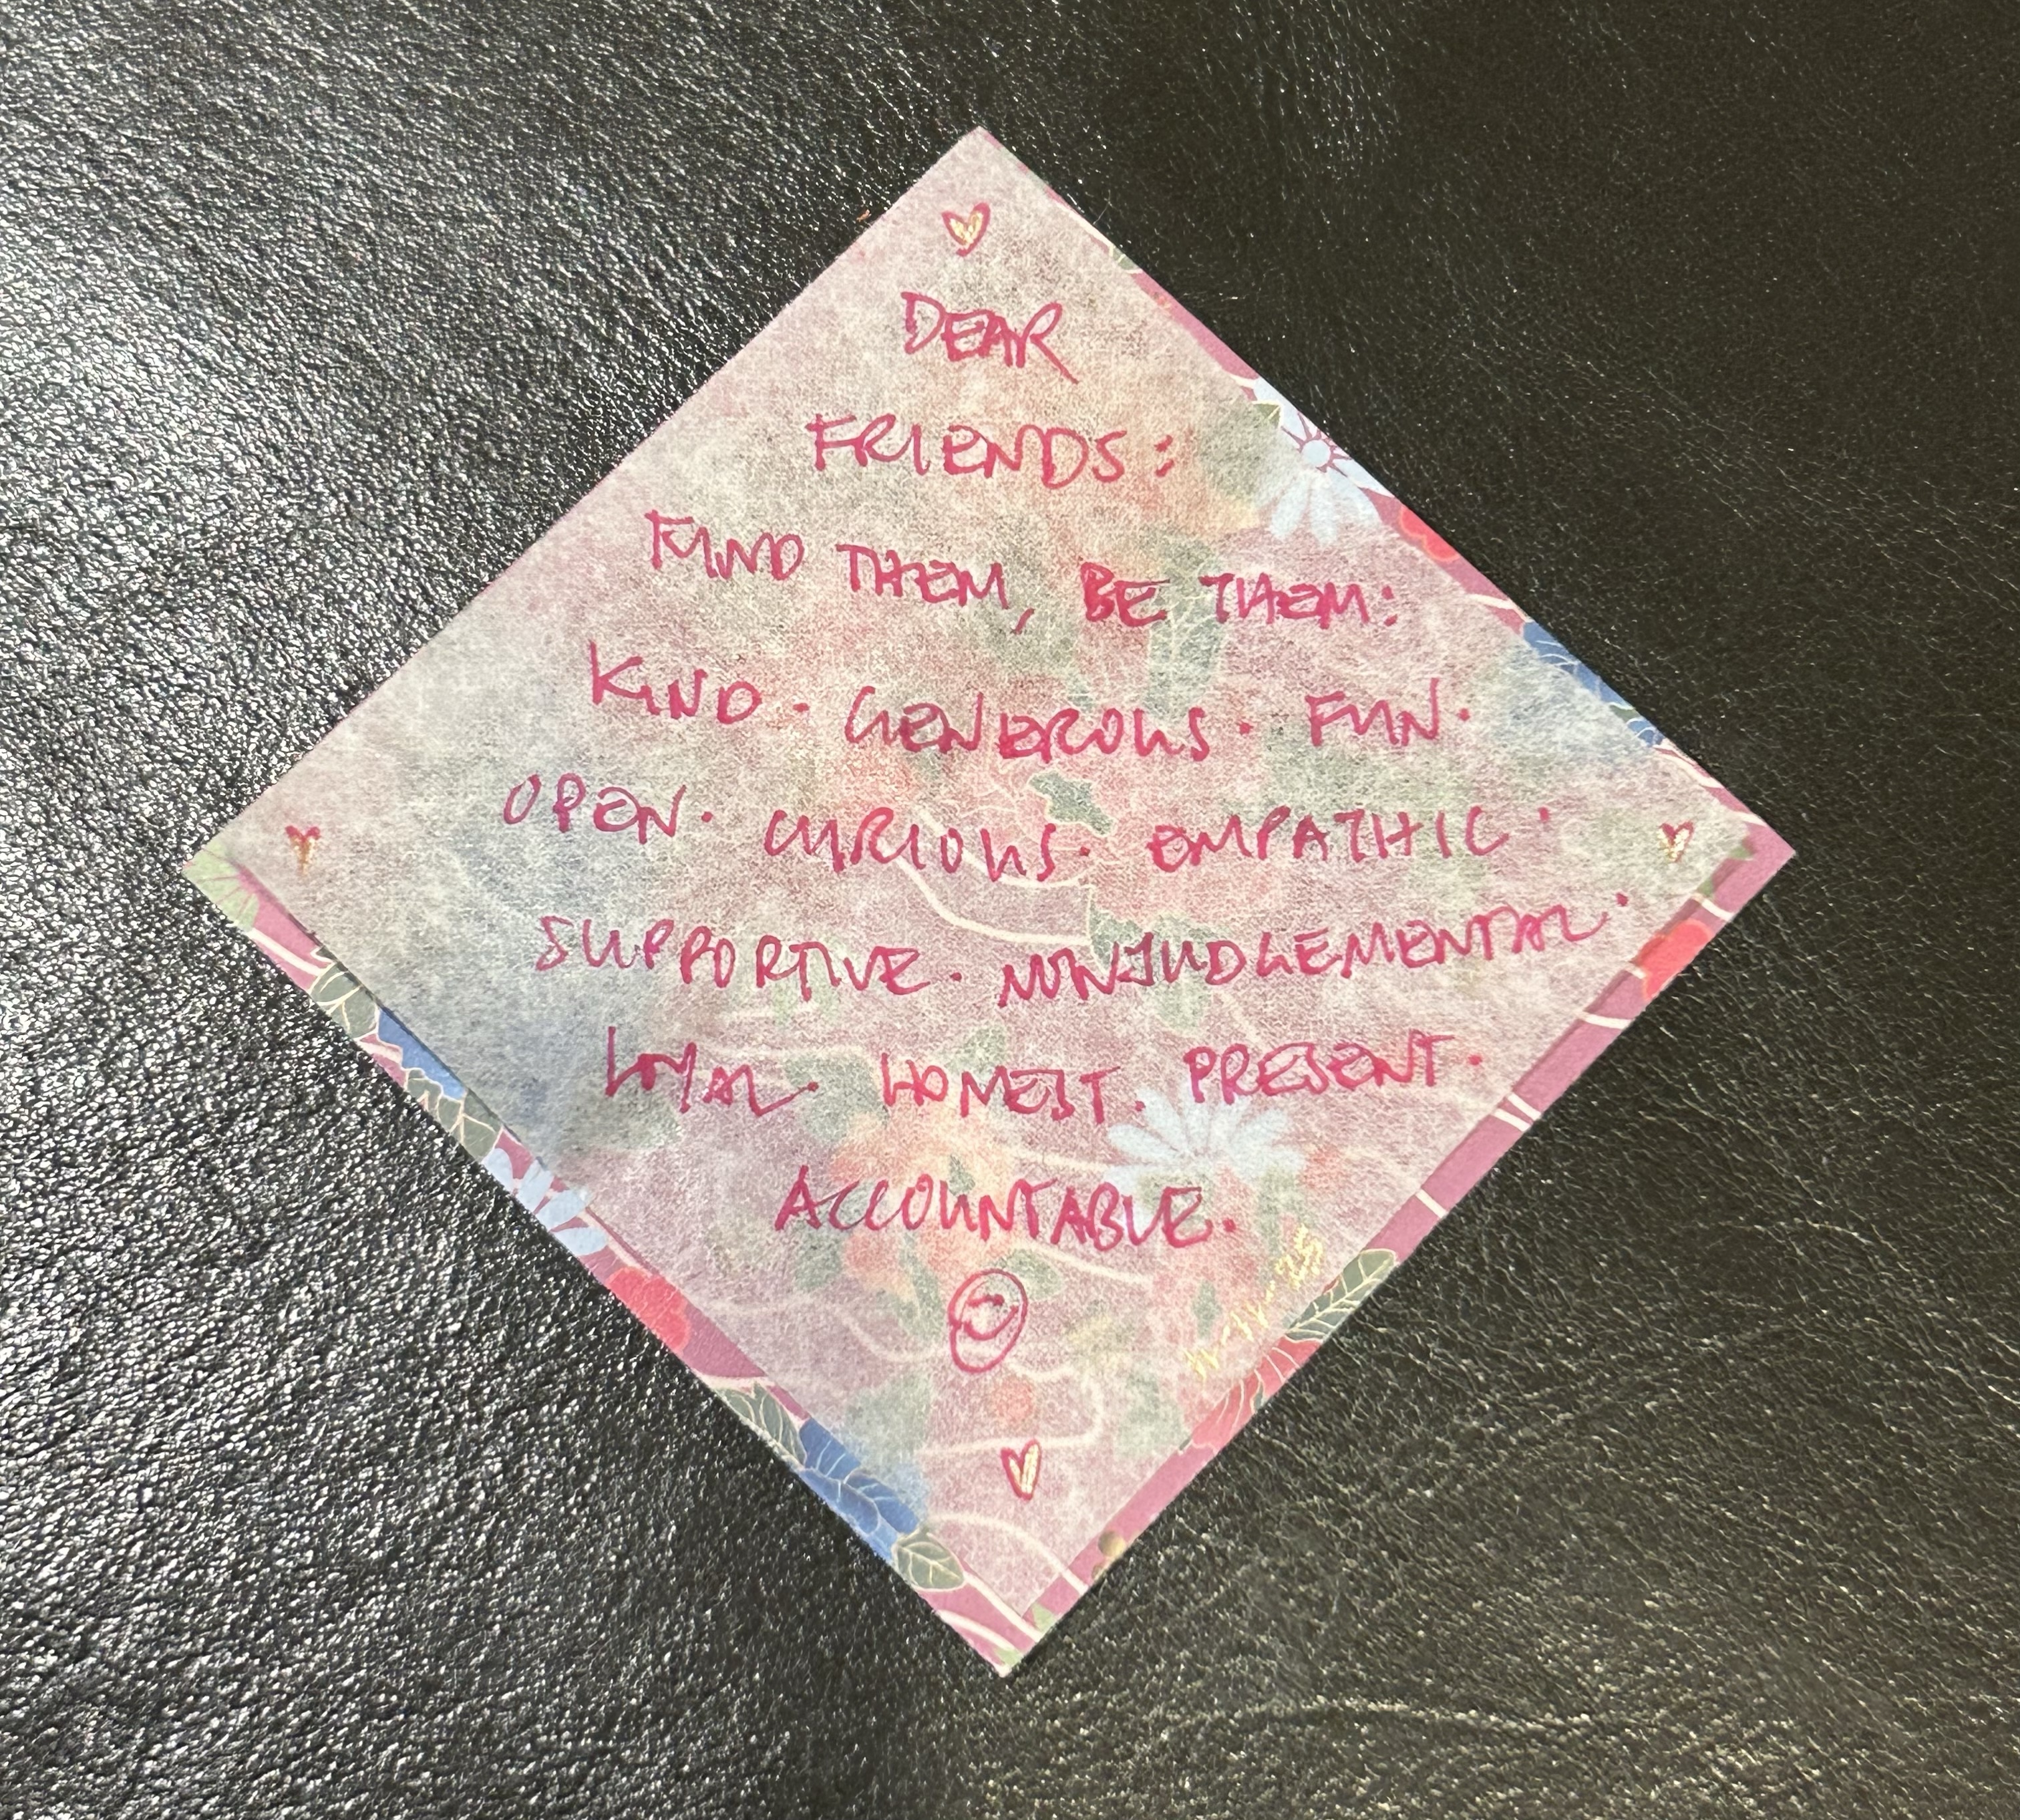 DEAR
FRIENDS:
FIND THEM, BE THEM:
KIND · GENEROUS · FUN ·
OPEN · CURIOUS · EMPATHIC ·
SUPPORTIVE · NONJUDGEMENTAL ·
LOYAL · HONEST · PRESENT ·
ACCOUNTABLE.